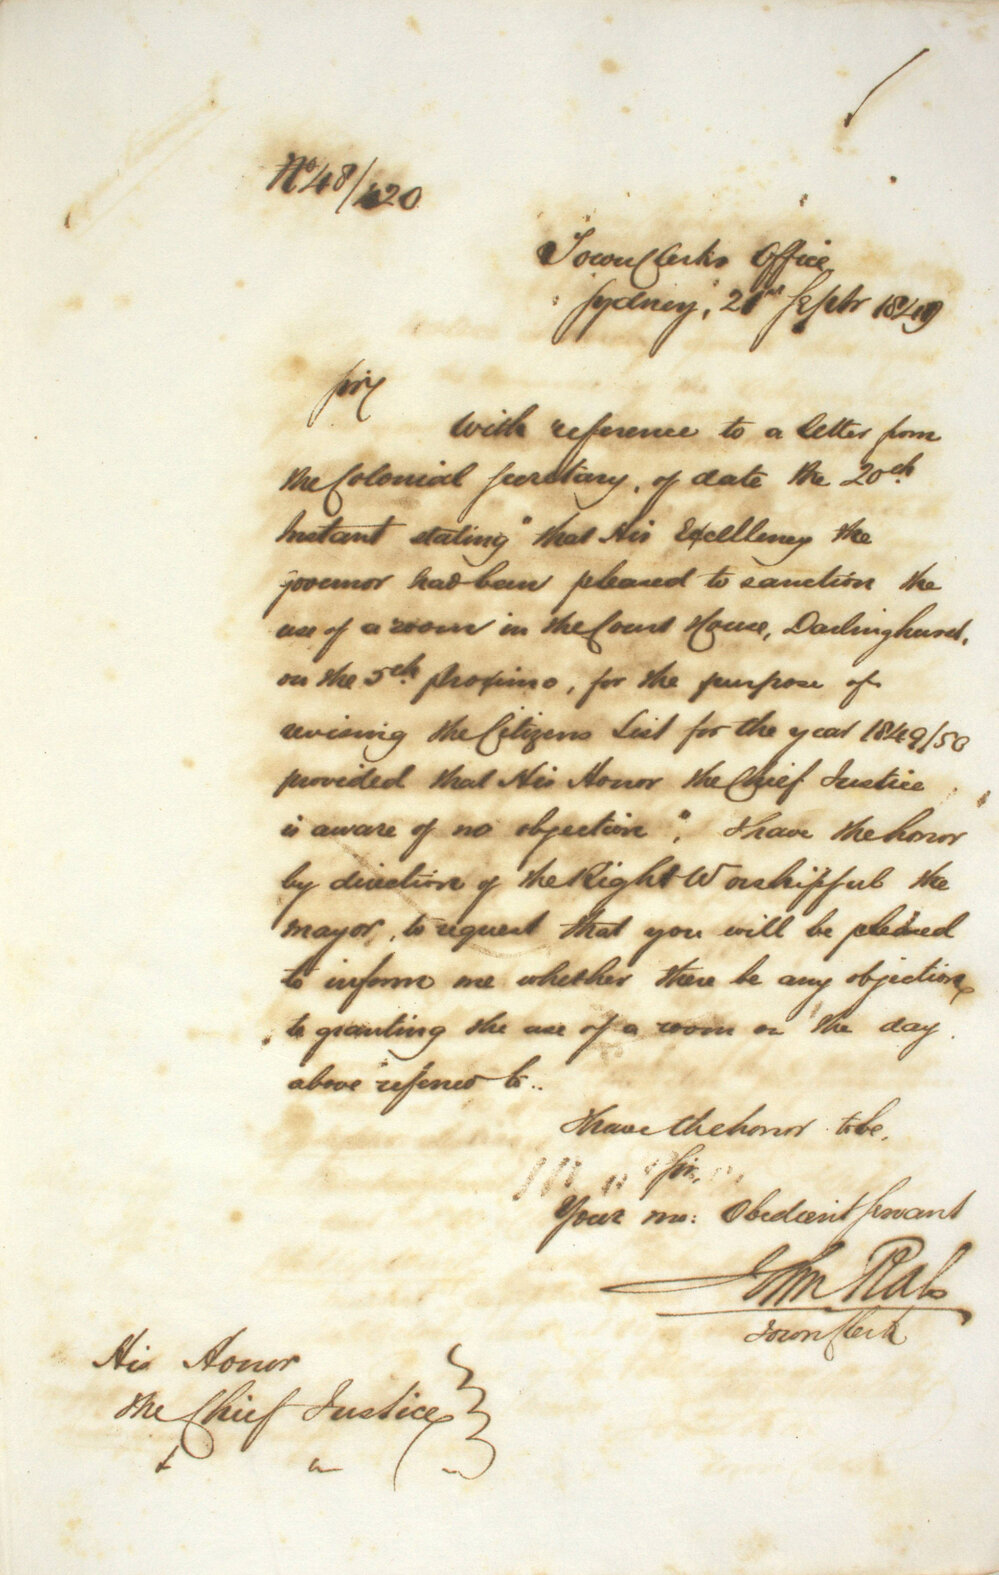 No 48/420
Town Clerks Office
Sydney, 21st Septr 1849
Sir,
With reference to a letter from
the Colonial Secretary, of date the 20th
Instant stating "that His Excellency the
Governor had been pleased to sanction the
use of a room in the Court House, Darlinghurst,
on the 5th Proximo, for the purpose of
revising the Citizens List for the year 1849/50
provided that His Honor the Chief Justice
is aware of no objection". I have the honor
by direction of the Right Worshipful the
Mayor, to request that you will be pleased
to inform me whether there be any objection
to granting the use of a room on the day
above referred to..
I have the honor to be,
Sir,
Your mo: Obedient Servant
John Rae
Town Clerk
His Honor
the Chief Justice